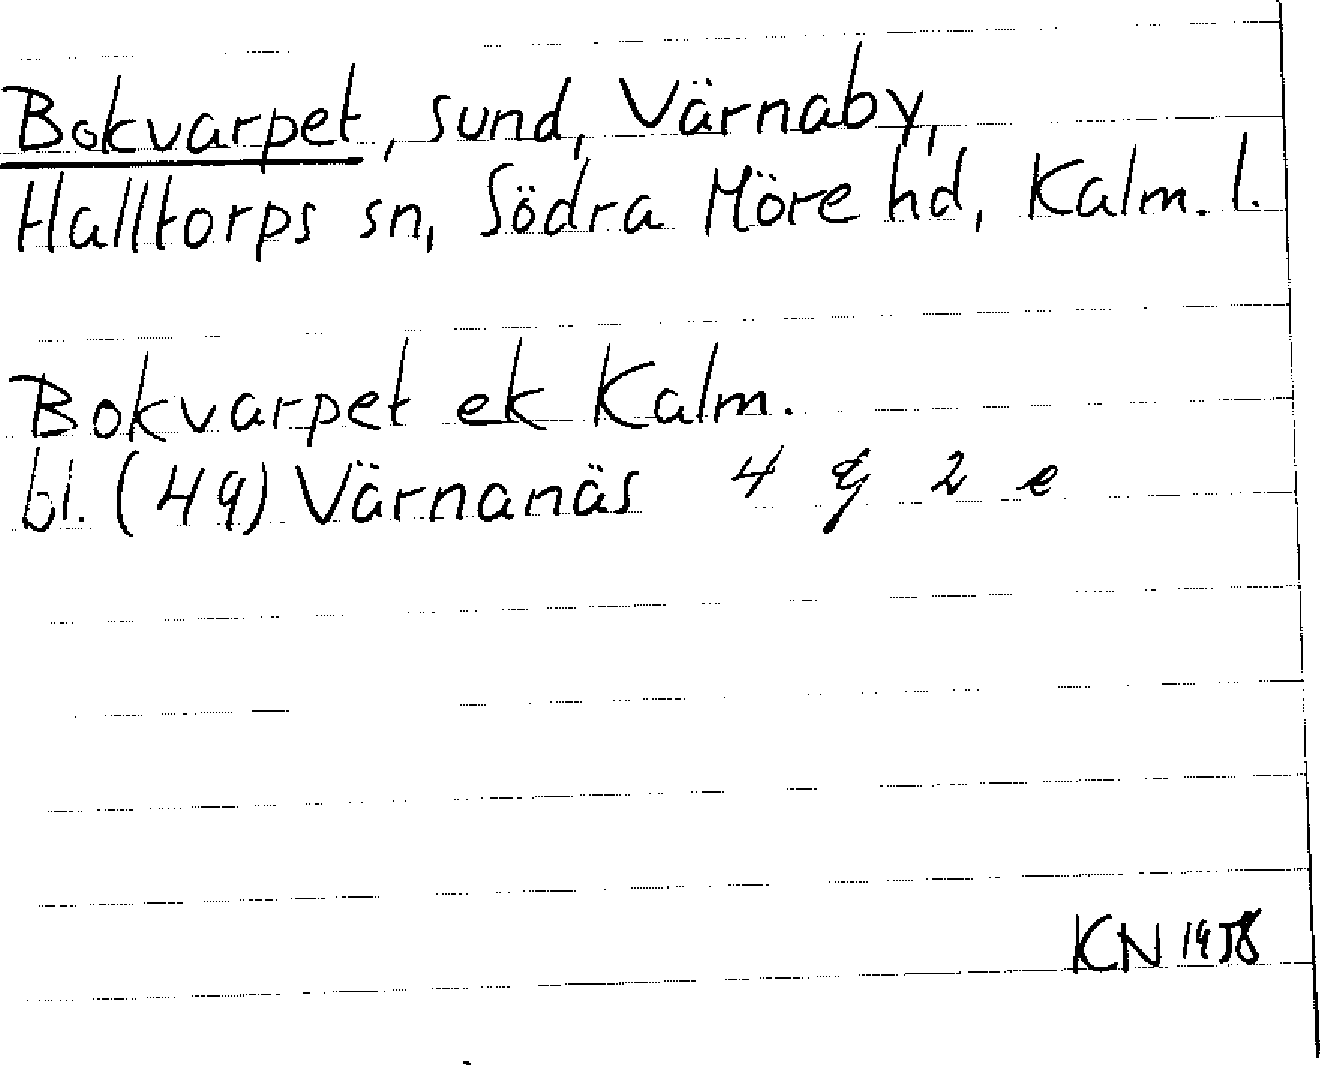 Bokvarpet, sund, Värnaby,
Halltorps sn, Södra Möre hd, Kalm. l.
Bokvarpet ek Kalm.
bl. (49) Värnanäs 4 g 2 e
KN 1958